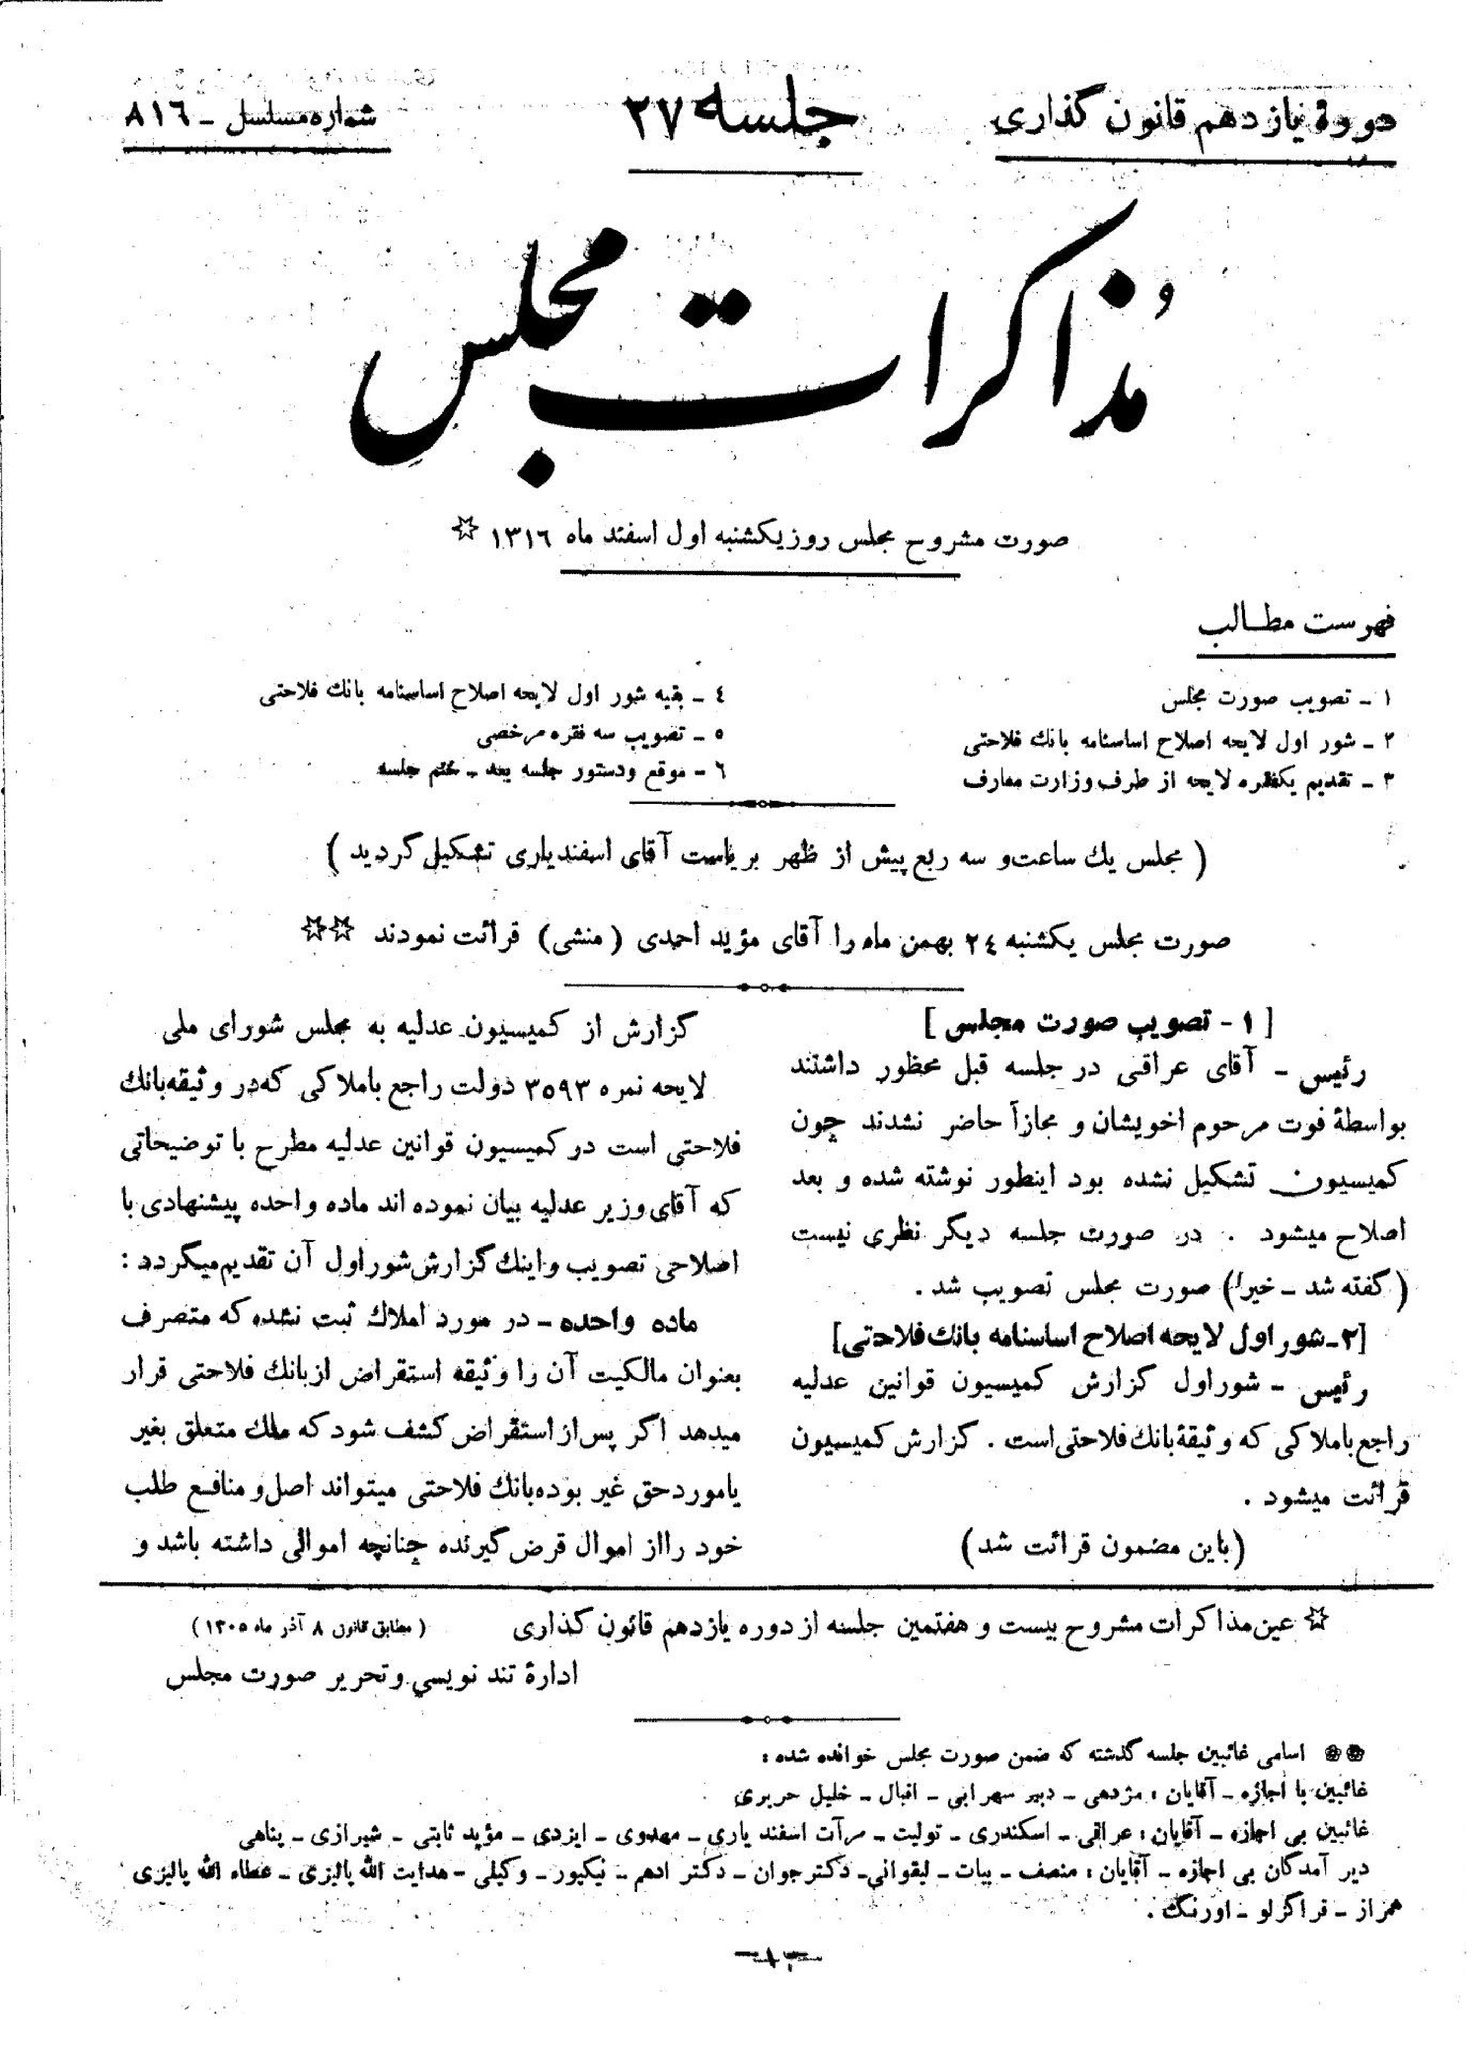 دورهٔ یازدهم قانون گذاری
جلسه ۲۷
شماره مسلسل ـ ۸۱۶
مُذاکرات مجلس
صورت مشروح مجلس روز یکشنبه اول اسفند ماه ۱۳۱۶ ☆
فهرست مطالب
۱ ـ تصویب صورت مجلس
۲ ـ شور اول لایحه اصلاح اساسنامه بانك فلاحتی
۳ ـ تقدیم یکفقره لایحه از طرف وزارت معارف
۴ ـ بقیه شور اول لایحه اصلاح اساسنامه بانك فلاحتی
۵ ـ تصویب سه فقره مرخصی
۶ ـ موقع ودستور جلسه بعد ـ ختم جلسه
( مجلس یك ساعت و سه ربع پیش از ظهر بریاست آقای اسفندیاری تشکیل گردید )
صورت مجلس یکشنبه ۲۴ بهمن ماه را آقای مؤید احمدی (منشی) قرائت نمودند ☆☆
[ ۱ ـ تصویب صورت مجلس ]
رئیس ـ آقای عراقی در جلسه قبل محظور داشتند
بواسطهٔ فوت مرحوم اخویشان و مجازاً حاضر نشدند چون
کمیسیون تشکیل نشده بود اینطور نوشته شده و بعد
اصلاح میشود . در صورت جلسه دیگر نظری نیست
(گفته شد ـ خیر) صورت مجلس تصویب شد .
[۲ـ شور اول لایحه اصلاح اساسنامه بانك فلاحتی]
رئیس ـ شور اول گزارش کمیسیون قوانین عدلیه
راجع باملاکی که وثیقهٔ بانك فلاحتی است . گزارش کمیسیون
قرائت میشود .
(باین مضمون قرائت شد)
گزارش از کمیسیون عدلیه به مجلس شورای ملی
لایحه نمره ۳۵۹۳ دولت راجع باملاکی که در وثیقه بانك
فلاحتی است در کمیسیون قوانین عدلیه مطرح با توضیحاتی
که آقای وزیر عدلیه بیان نموده اند ماده واحده پیشنهادی با
اصلاحی تصویب و اینك گزارش شور اول آن تقدیم میگردد :
ماده واحده ـ در مورد املاك ثبت نشده که متصرف
بعنوان مالکیت آن را وثیقه استقراض از بانك فلاحتی قرار
میدهد اگر پس از استقراض کشف شود که ملك متعلق بغیر
یا مورد حق غیر بوده بانك فلاحتی میتواند اصل و منافع طلب
خود را از اموال قرض گیرنده چنانچه اموالی داشته باشد و
☆ عین مذاکرات مشروح بیست و هفتمین جلسه از دوره یازدهم قانون گذاری (مطابق قانون ۸ آذر ماه ۱۳۰۵)
ادارهٔ تند نویسی و تحریر صورت مجلس
❀❀ اسامی غائبین جلسه گذشته که ضمن صورت مجلس خوانده شده :
غائبین با اجازه ـ آقایان : مژدهی ـ دبیر سهرابی ـ اقبال ـ خلیل حریری
غائبین بی اجازه ـ آقایان : عراقی ـ اسکندری ـ تولیت ـ مرآت اسفندیاری ـ مهدوی ـ ایزدی ـ مؤید ثابتی ـ شیرازی ـ پناهی
دیر آمدگان بی اجازه ـ آقایان : منصف ـ بیات ـ لیقوانی ـ دکتر جوان ـ دکتر ادهم ـ نیکپور ـ وکیلی ـ هدایت الله پالیزی ـ عطاء الله پالیزی
همراز ـ قراگزلو ـ اورنگ .